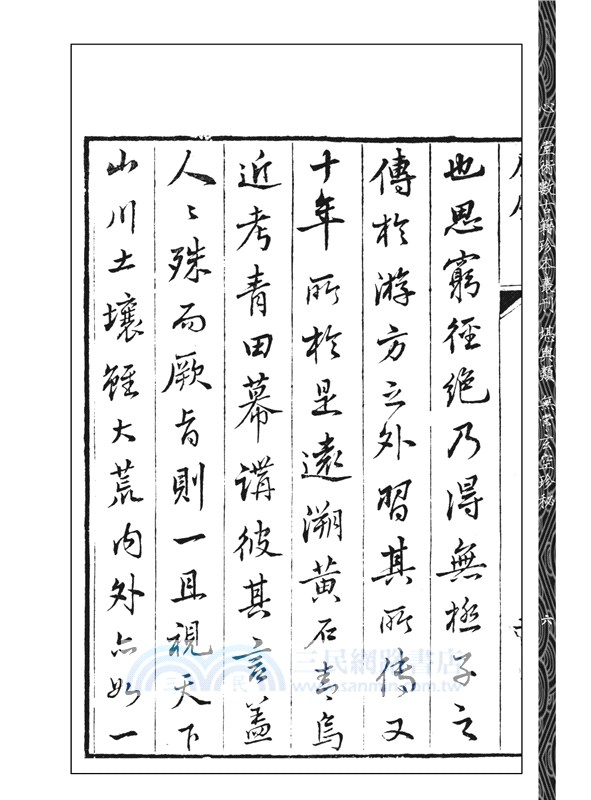 心一堂術數古籍珍本叢刊 堪輿類 無常派玄空珍秘 六
也思窮徑絕乃得無極子之
傳於游方之外習其所傳又
十年所於是遠溯黃石青烏
近考青田幕講彼其言蓋
人〻殊而厥旨則一且視天下
山川土壤雖大荒內外亦如一
三民網路書店
www.sanmin.com.tw
三 民